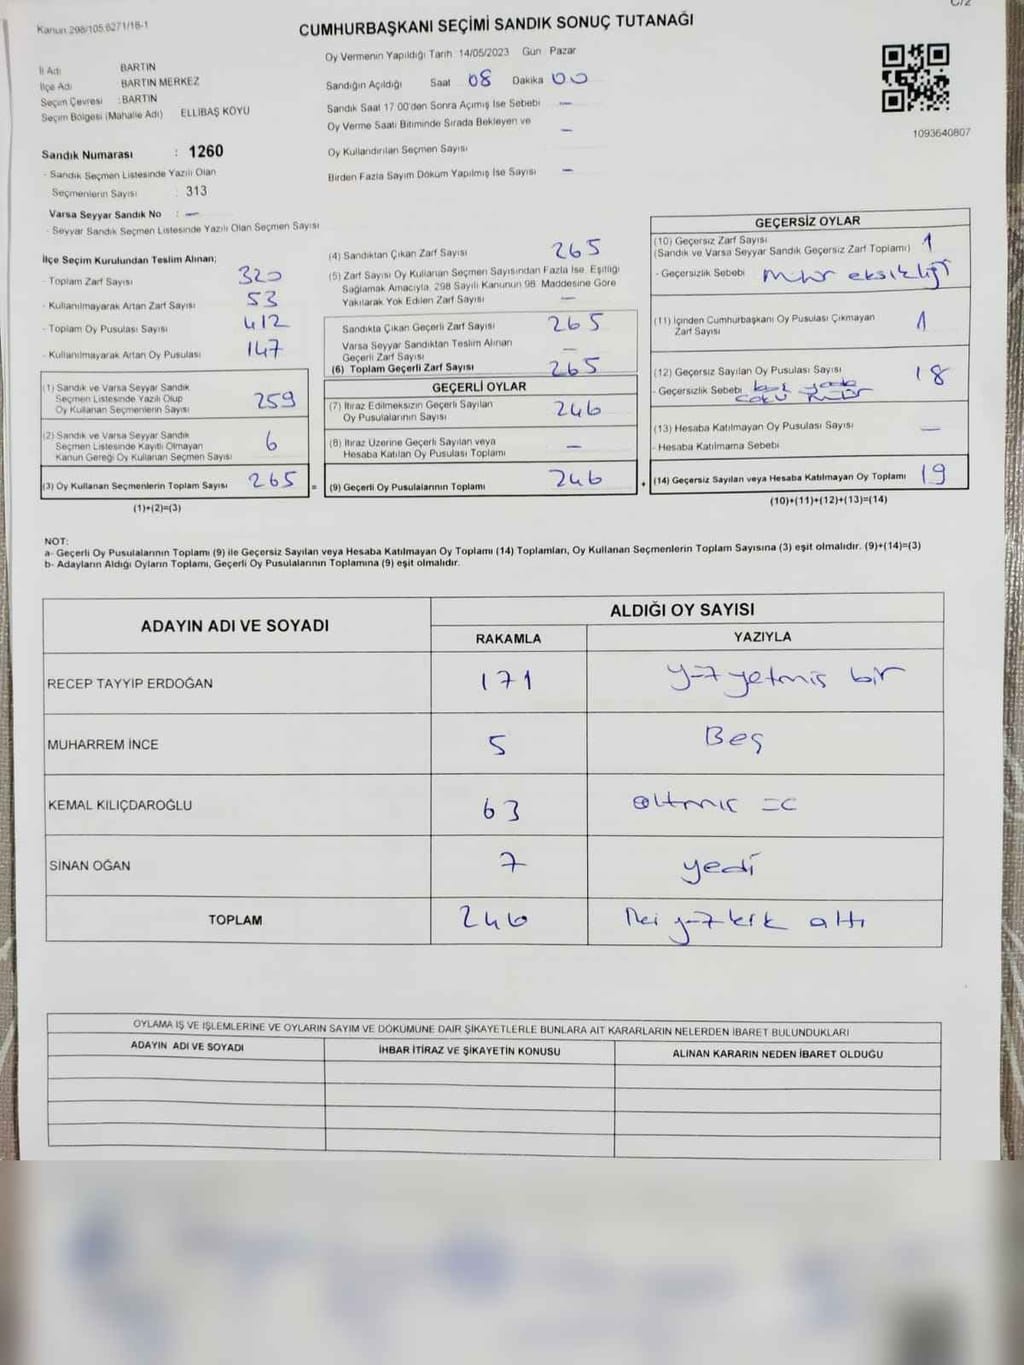 C/2
Kanun 298/105,6271/18-1
CUMHURBAŞKANI SEÇİMİ SANDIK SONUÇ TUTANAĞI
İl Adı : BARTIN
İlçe Adı BARTIN MERKEZ
Seçim Çevresi : BARTIN
Seçim Bölgesi (Mahalle Adı) ELLİBAŞ KÖYÜ
Sandık Numarası : 1260
- Sandık Seçmen Listesinde Yazılı Olan
Seçmenlerin Sayısı : 313
Varsa Seyyar Sandık No : —
- Seyyar Sandık Seçmen Listesinde Yazılı Olan Seçmen Sayısı
Oy Vermenin Yapıldığı Tarih 14/05/2023 Gün Pazar
Sandığın Açıldığı Saat 08 Dakika 00
Sandık Saat 17:00'den Sonra Açımış İse Sebebi —
Oy Verme Saati Bitiminde Sırada Bekleyen ve —
Oy Kullandırılan Seçmen Sayısı
Birden Fazla Sayım Döküm Yapılmış İse Sayısı —
1093640807
İlçe Seçim Kurulundan Teslim Alınan;
- Toplam Zarf Sayısı 320
- Kullanılmayarak Artan Zarf Sayısı 53
- Toplam Oy Pusulası Sayısı 412
- Kullanılmayarak Artan Oy Pusulası 147
(1) Sandık ve Varsa Seyyar Sandık
Seçmen Listesinde Yazılı Olup
Oy Kullanan Seçmenlerin Sayısı 259
(2) Sandık ve Varsa Seyyar Sandık
Seçmen Listesinde Kayıtlı Olmayan
Kanun Gereği Oy Kullanan Seçmen Sayısı 6
(3) Oy Kullanan Seçmenlerin Toplam Sayısı 265
(1)+(2)=(3)
(4) Sandıktan Çıkan Zarf Sayısı 265
(5) Zarf Sayısı Oy Kullanan Seçmen Sayısından Fazla İse, Eşitliği
Sağlamak Amacıyla, 298 Sayılı Kanunun 98. Maddesine Göre
Yakılarak Yok Edilen Zarf Sayısı —
Sandıkta Çıkan Geçerli Zarf Sayısı 265
Varsa Seyyar Sandıktan Teslim Alınan
Geçerli Zarf Sayısı —
(6) Toplam Geçerli Zarf Sayısı 265
GEÇERLİ OYLAR
(7) İtiraz Edilmeksizin Geçerli Sayılan
Oy Pusulalarının Sayısı 246
(8) İtiraz Üzerine Geçerli Sayılan veya
Hesaba Katılan Oy Pusulası Toplamı —
= (9) Geçerli Oy Pusulalarının Toplamı 246
GEÇERSİZ OYLAR
(10) Geçersiz Zarf Sayısı
(Sandık ve Varsa Seyyar Sandık Geçersiz Zarf Toplamı) 1
- Geçersizlik Sebebi mühür eksikliği
(11) İçinden Cumhurbaşkanı Oy Pusulası Çıkmayan
Zarf Sayısı 1
(12) Geçersiz Sayılan Oy Pusulası Sayısı 18
- Geçersizlik Sebebi
(13) Hesaba Katılmayan Oy Pusulası Sayısı —
- Hesaba Katılmama Sebebi
+ (14) Geçersiz Sayılan veya Hesaba Katılmayan Oy Toplamı 19
(10)+(11)+(12)+(13)=(14)
NOT:
a- Geçerli Oy Pusulalarının Toplamı (9) ile Geçersiz Sayılan veya Hesaba Katılmayan Oy Toplamı (14) Toplamları, Oy Kullanan Seçmenlerin Toplam Sayısına (3) eşit olmalıdır. (9)+(14)=(3)
b- Adayların Aldığı Oyların Toplamı, Geçerli Oy Pusulalarının Toplamına (9) eşit olmalıdır.
ADAYIN ADI VE SOYADI ALDIĞI OY SAYISI
RAKAMLA YAZIYLA
RECEP TAYYİP ERDOĞAN 171 yüz yetmiş bir
MUHARREM İNCE 5 Beş
KEMAL KILIÇDAROĞLU 63 altmış üç
SİNAN OĞAN 7 yedi
TOPLAM 246 İki yüz kırk altı
OYLAMA İŞ VE İŞLEMLERİNE VE OYLARIN SAYIM VE DÖKÜMÜNE DAİR ŞİKAYETLERLE BUNLARA AİT KARARLARIN NELERDEN İBARET BULUNDUKLARI
ADAYIN ADI VE SOYADI İHBAR İTİRAZ VE ŞİKAYETİN KONUSU ALINAN KARARIN NEDEN İBARET OLDUĞU